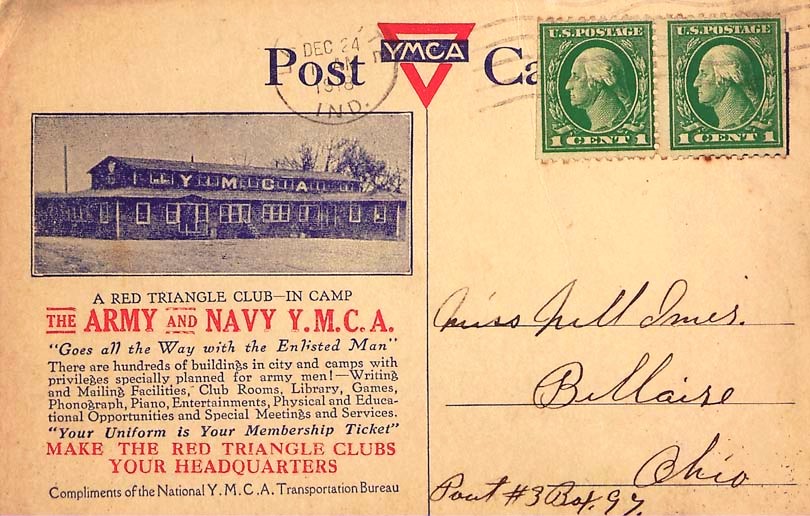 Post YMCA Ca
DEC 24
1918
IND.
U.S.POSTAGE
1 CENT 1
U.S.POSTAGE
1 CENT 1
Y M C A
A RED TRIANGLE CLUB—IN CAMP
THE ARMY AND NAVY Y.M.C.A.
"Goes all the Way with the Enlisted Man"
There are hundreds of buildings in city and camps with
privileges specially planned for army men!—Writing
and Mailing Facilities, Club Rooms, Library, Games,
Phonograph, Piano, Entertainments, Physical and Educa-
tional Opportunities and Special Meetings and Services.
"Your Uniform is Your Membership Ticket"
MAKE THE RED TRIANGLE CLUBS
YOUR HEADQUARTERS
Compliments of the National Y.M.C.A. Transportation Bureau
Miss Nell Imes.
Bellaire
Ohio
#3 Box. 97.